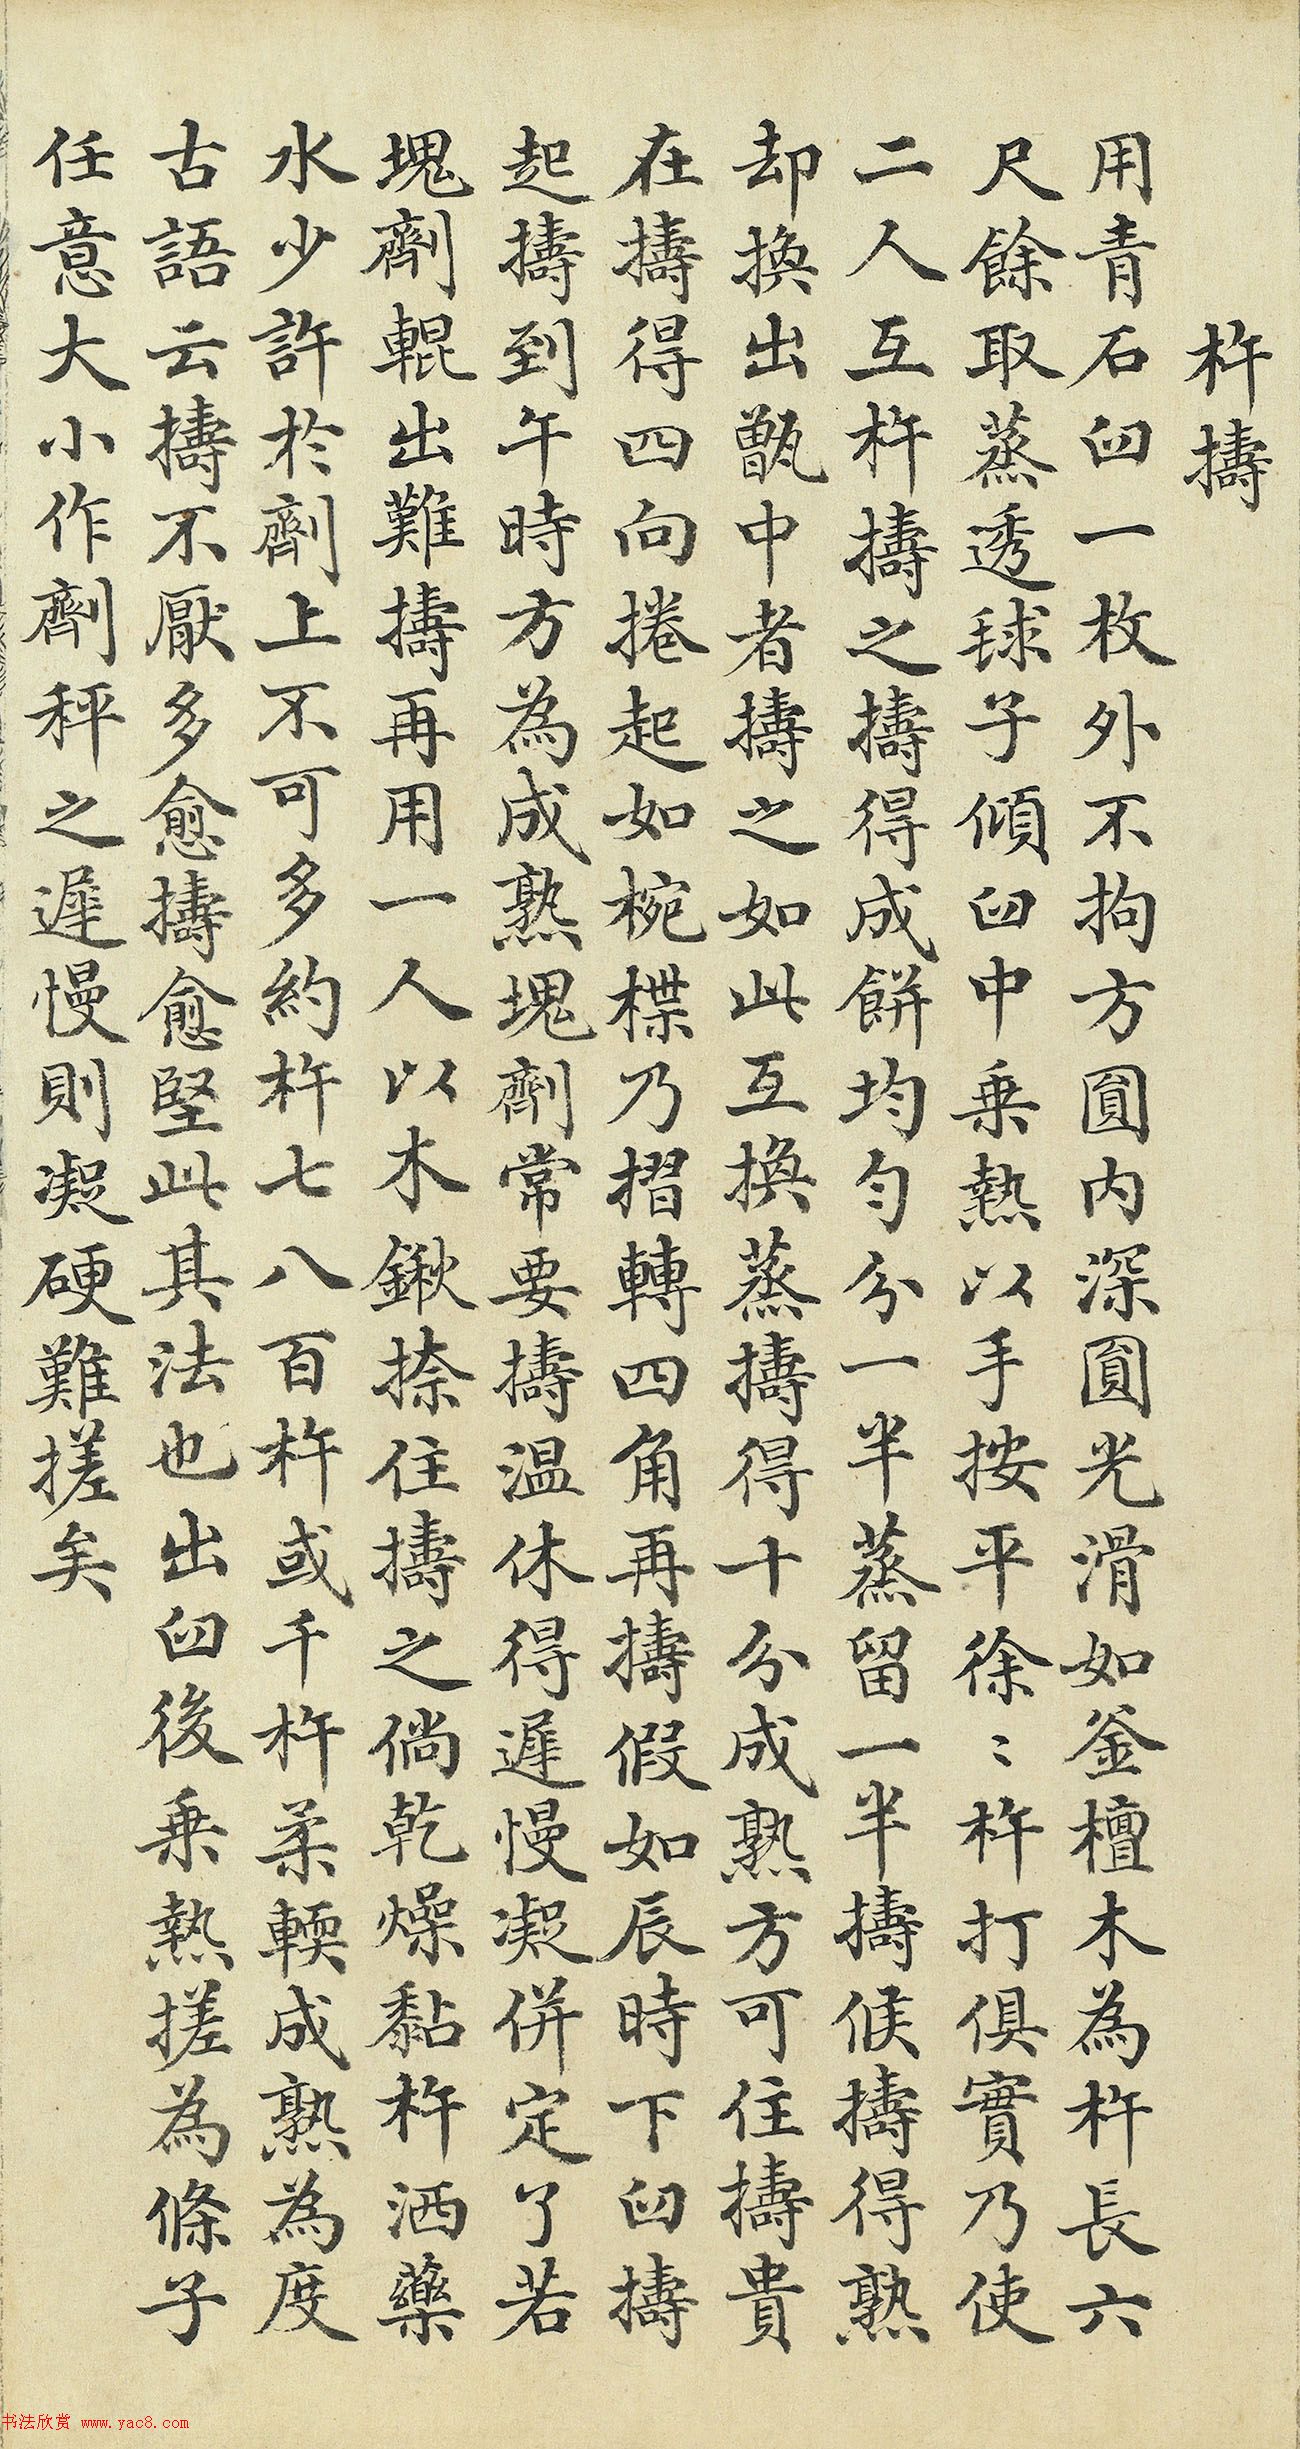 杵擣
用青石臼一枚外不拘方圓内深圓光滑如釜檀木為杵長六
尺餘取蒸透毬子傾臼中乗熱以手按平徐〻杵打俱實乃使
二人互杵擣之擣得成餅均勻分一半蒸留一半擣候擣得熟
却換出甑中者擣之如此互換蒸擣得十分成熟方可住擣貴
在擣得四向捲起如椀楪乃摺轉四角再擣假如辰時下臼擣
起擣到午時方為成熟塊劑常要擣温休得遲慢凝併定了若
塊劑輥出難擣再用一人以木鍬捺住擣之倘乾燥黏杵洒藥
水少許於劑上不可多約杵七八百杵或千杵柔輭成熟為度
古語云擣不厭多愈擣愈堅此其法也出臼後乗熱搓為條子
任意大小作劑秤之遲慢則凝硬難搓矣
书法欣赏 www.yac8.com